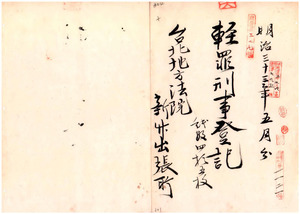 明治三十三年五月分
軽罪刑事登記
紙数四拾五枚
台北地方法院
新竹出張所